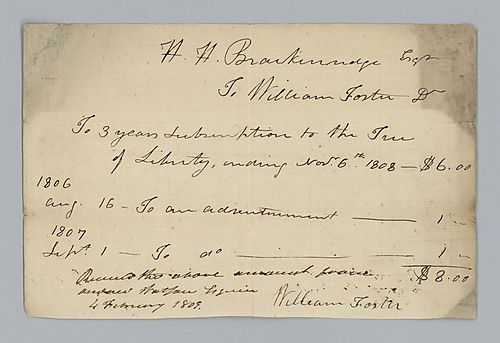 H. H. Brackenridge Esqr
To William Foster Dr
To 3 years subscription to the Tree
of Liberty, ending Novr. 6th. 1808 — $6.00
1806
Aug. 16 — To an advertisement — 1 —
1807
Sept. 1 — To do — 1 —
$8.00
Received the above amount
Andrew Watson Esquire
4 February 1809.
William Foster